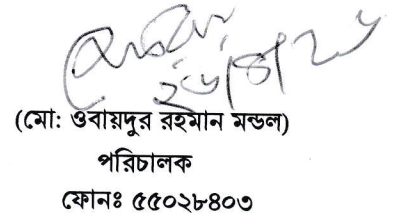 (মো: ওবায়দুর রহমান মন্ডল)
পরিচালক
ফোনঃ ৫৫০২৮৪০৩